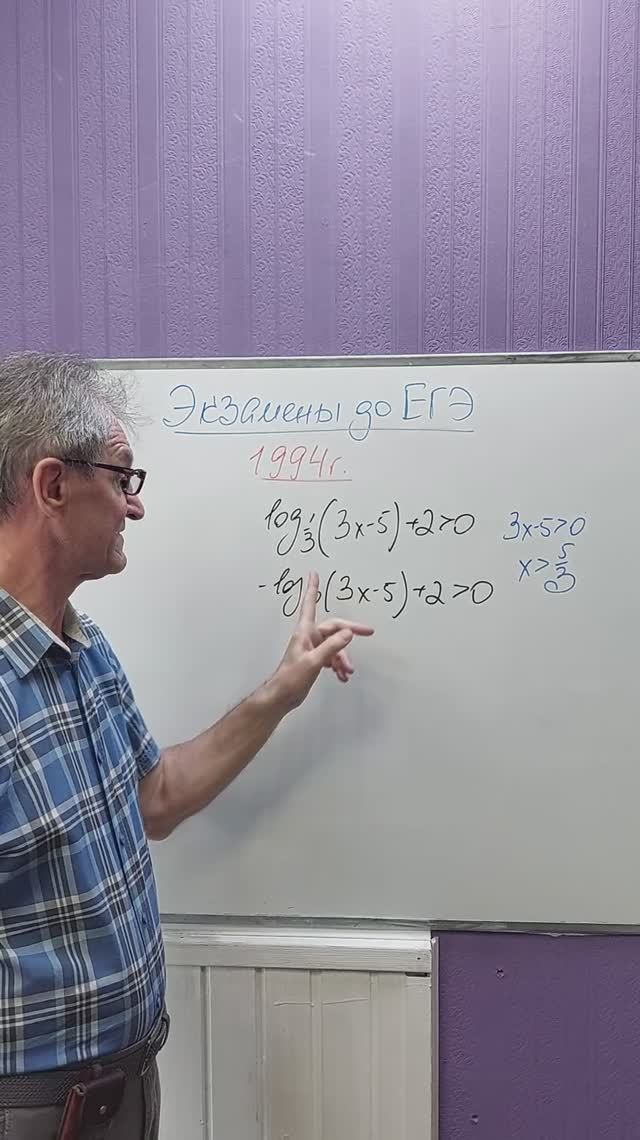 Экзамены до ЕГЭ
1994г.
log 1/3 (3x-5)+2>0
3x-5>0
x> 5/3
-log 3 (3x-5)+2>0